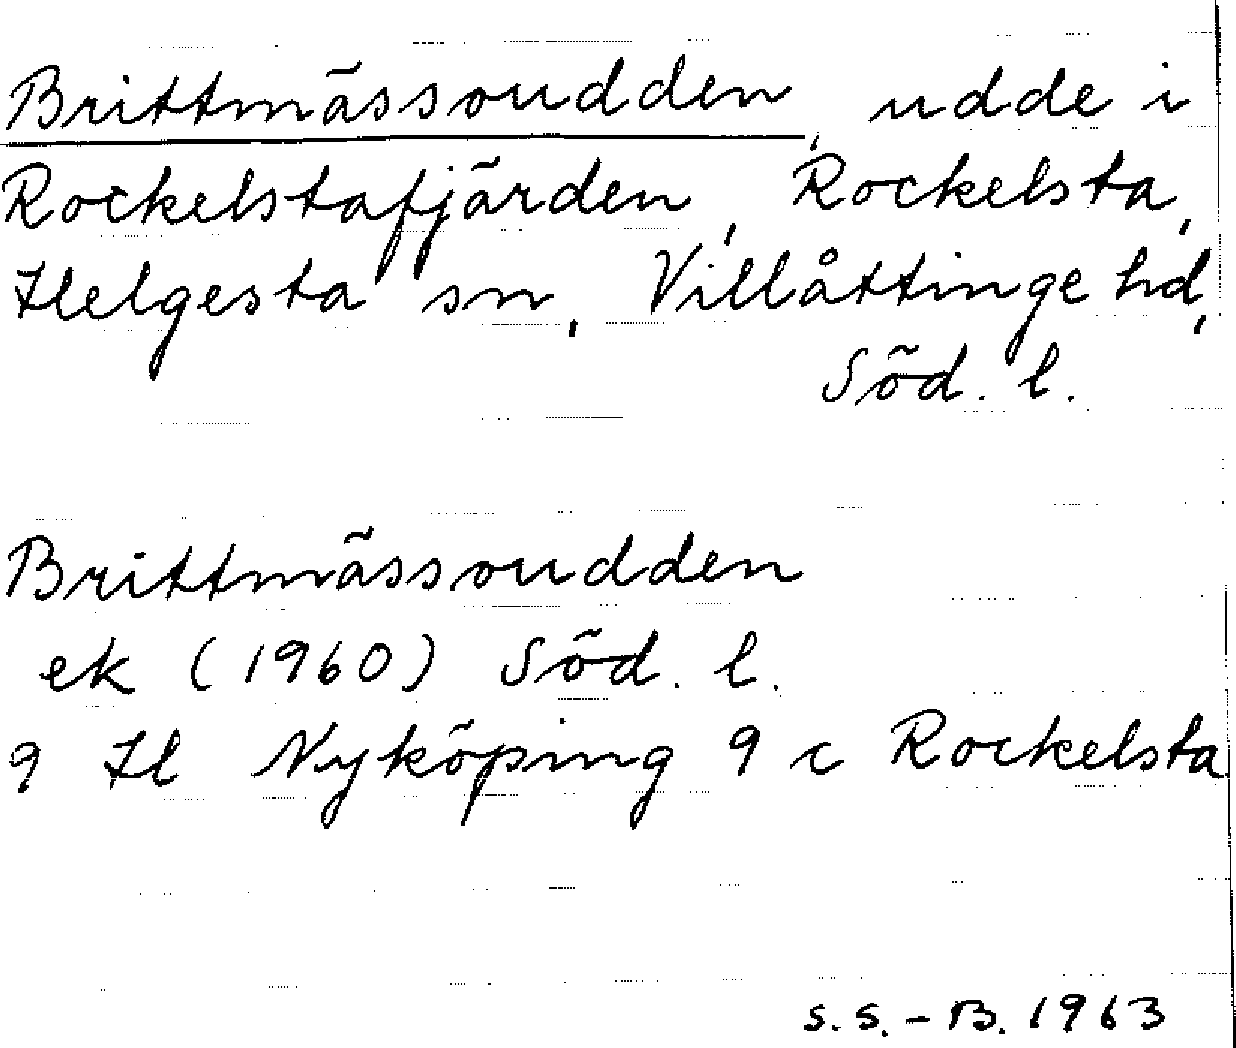 Brittmässoudden, udde i
Rockelstafjärden, Rockelsta,
Helgesta sn, Villåttinge hd,
Söd. l.
Brittmässoudden
ek (1960) Söd. l.
9 H Nyköping 9 c Rockelsta
S.S.-B. 1963